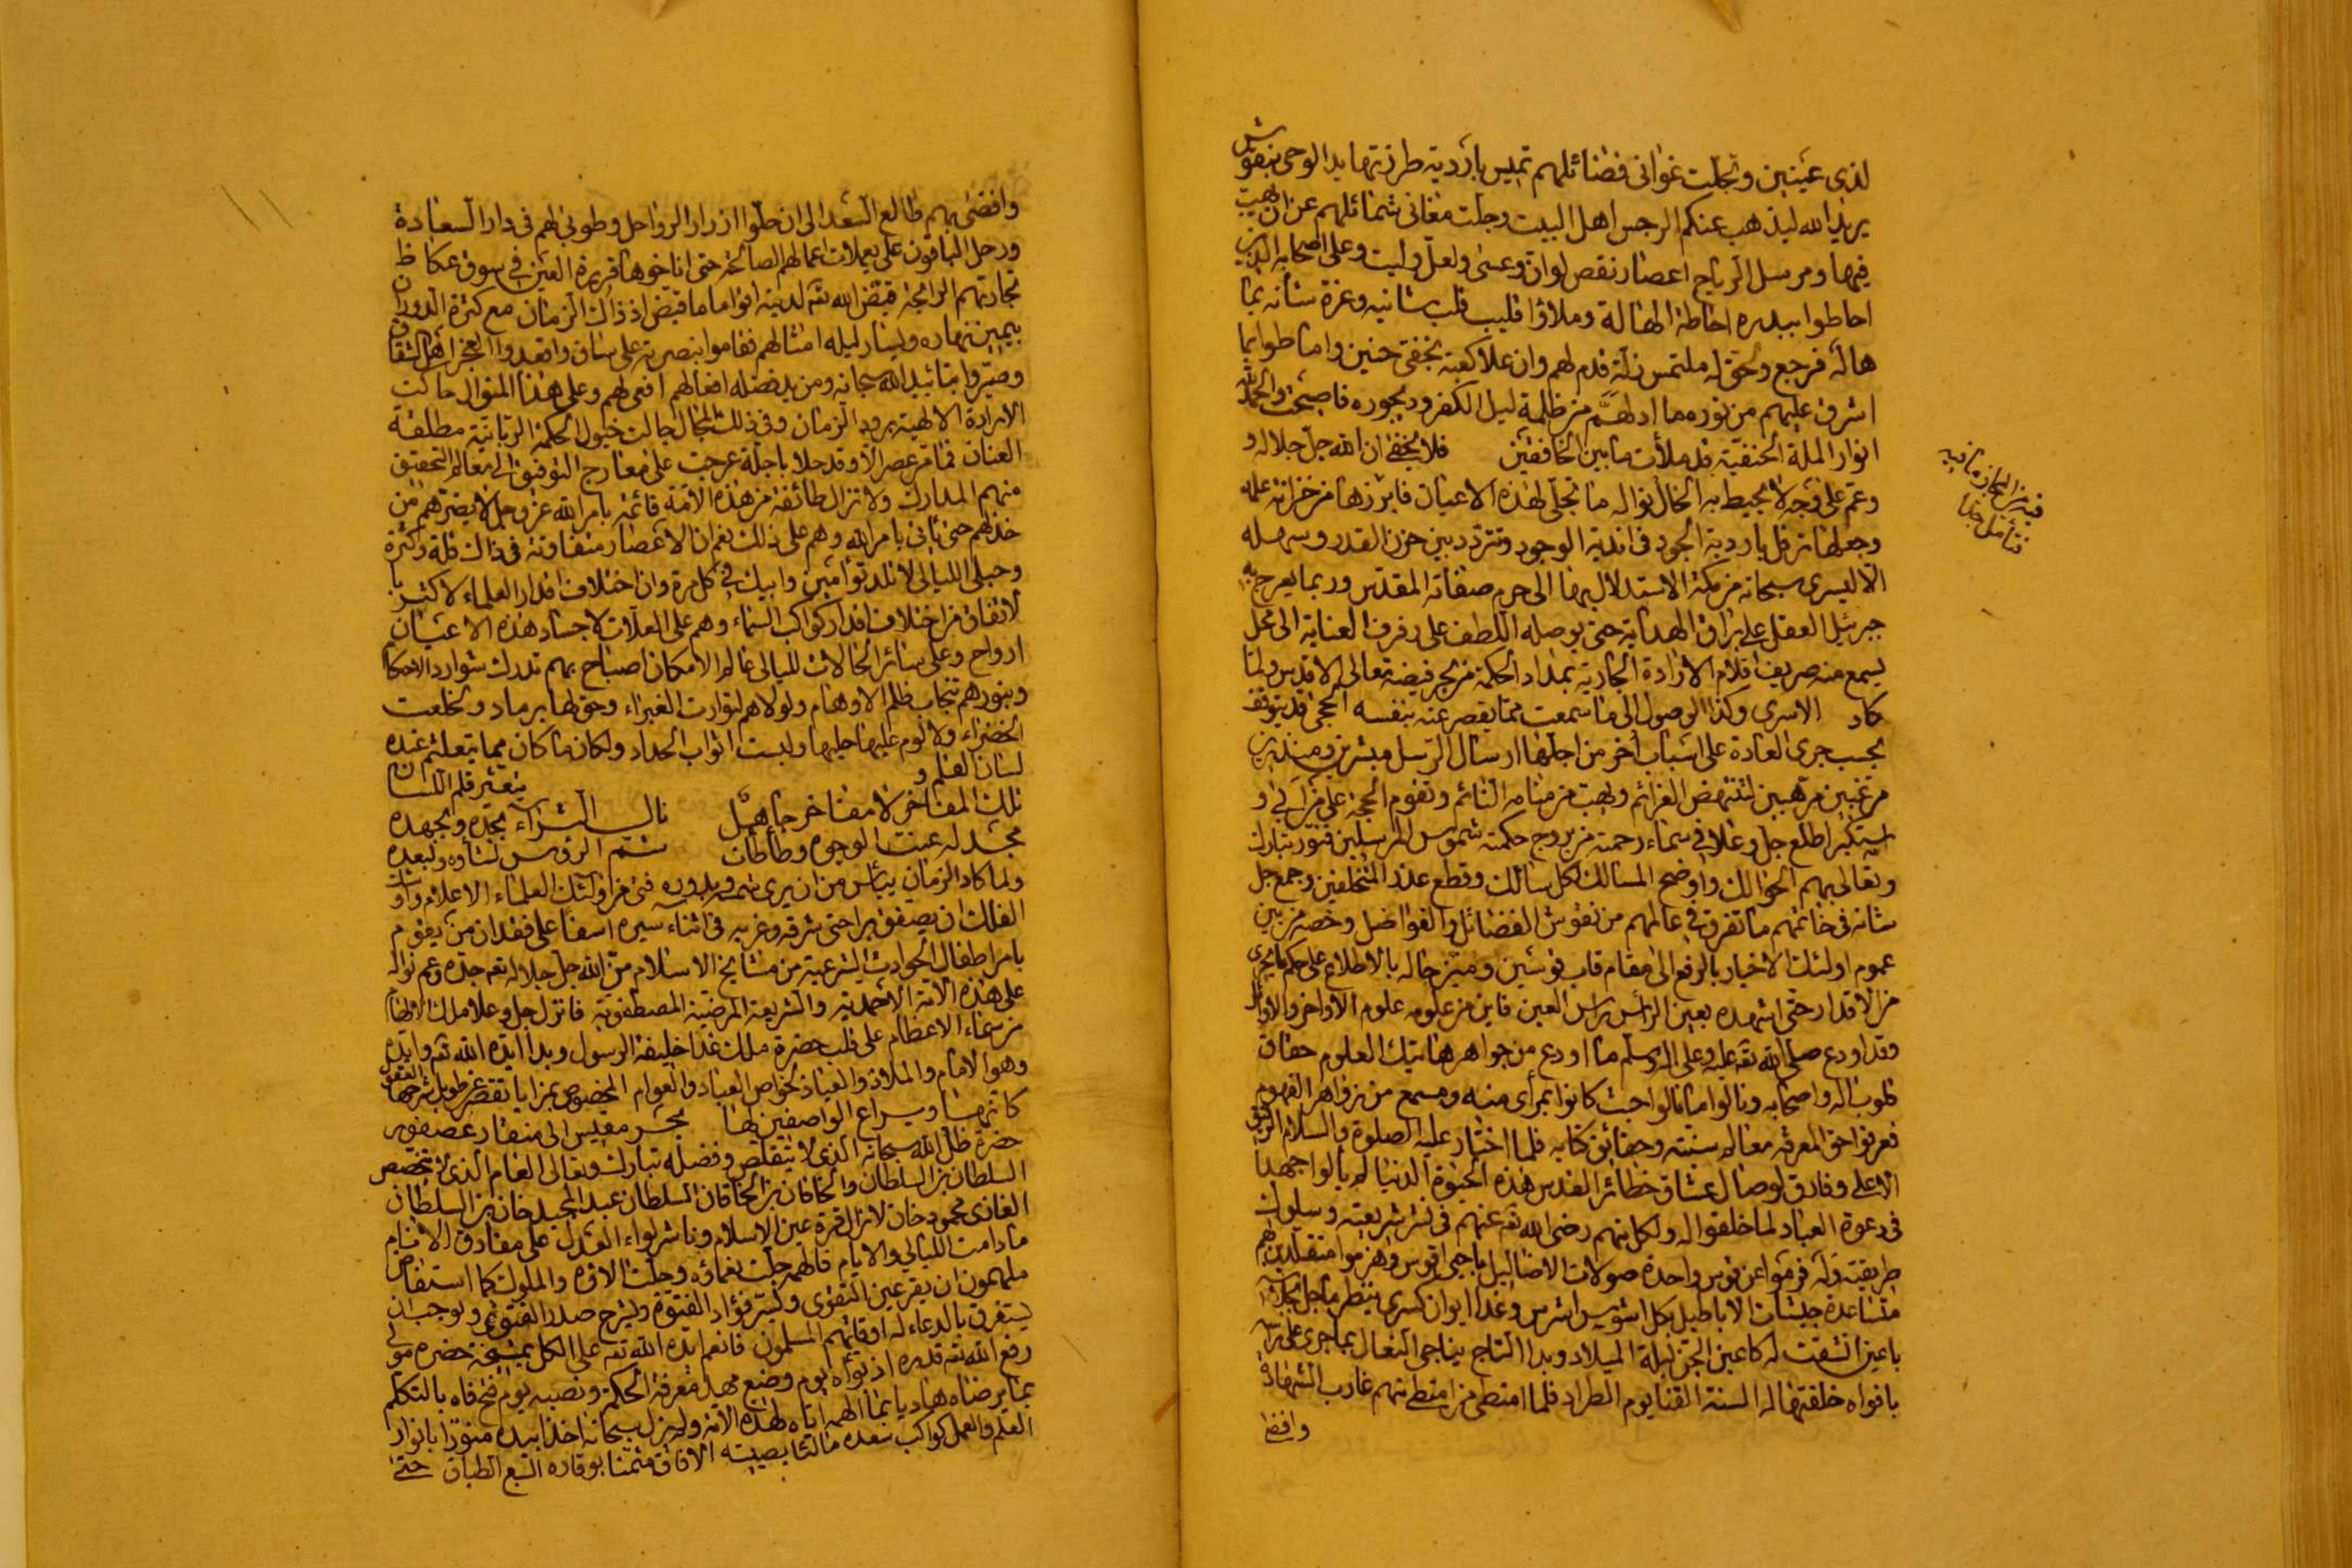 لذى عينين وتجلت غوانى فضائلهم تميس باردية طرزتها يد الوحى بنقوش
يريد الله ليذهب عنكم الرجس اهل البيت وجلت مغانى شمائلهم عن ان
فيها ومرسل الرياح اعصار نقص لو ان وعسى ولعل وليت وعلى اصحابه الذين
احاطوا ببدره احاطة الهالة وملاؤا قليب قلب شانيه وعزة شأنه بما
هاله فرجع وحق له ملتمس زلة قدم لهم وان علا كعبه بخفى حنين واماطوا بما
اشرق عليهم من نوره ما ادلهم من ظلمة ليل الكفر وديجوره فاصبحت والحمد لله
انوار الملة الحنفية قد ملأت ما بين الخافقين فلا يخفى ان الله جل جلاله و
وعم على وجه لا يحيط به الخال نواله ما تجلى لهذه الاعيان فابرزها من خزانة علمه
وجعلها ترفل باردية الجود فى اندية الوجود وتتردد بين حزن القدر وسهله
الا ليسرى سبحانه من مكة الاستدلال بها الى حرم صفاته المقدس وربما يعرج به
جبرئيل العقل على براق الهداية حتى يوصله اللطف على رفرف العناية الى محل
يسمع منه صريف اقلام الارادة الجارية بمداد الحكمة من بحر فيضه تعالى الاقدس ولما
كاد الاسرى وكذا الوصول الى ما سمعت مما يقصر عنه بنفسه الحجى قد يتوقف
بحسب جرى العادة على اسباب أخر من اجلها ارسال الرسل مبشرين ومنذرين
مرغبين مرهبين لتنتهض العزائم ويهب من منامه النائم وتقوم الحجة على من ابى و
استكبر اطلع جل وعلا فى سماء رحمته من بروج حكمته شموس المرسلين فنور تبارك
وتعالى بهم الحوالك واوضح المسالك لكل سالك وقطع عذر المتخلفين وجمع جل
شانه فى خاتمهم ما تفرق فى عالمهم من نقوش الفضائل والفواضل وخصه من بين
عموم اولئك الاخيار بالرفع الى مقام قاب قوسين وميز حاله بالاطلاع على حكم ما يجرى
من الاقدار حتى اشهده بعين الرأس راس العين فاين من علومه علوم الاواخر والاوائل
وقد اودع صلى الله تع عليه وعلى اله وسلم ما اودع من جواهر هاتيك العلوم حقاق
قلوب اله واصحابه ونالوا ما نالوا حيث كانوا بمرأى منه ومسمع من زواهر الفهوم
فعرفوا حق المعرفة معالم سنته وحقائق كتابه فلما اختار عليه الصلوة والسلام الرفيق
الاعلى وفارق لوصال عشاق حظائر القدس هذه الحيوة الدنيا لم يألوا جهدا
فى دعوة العباد لما خلقوا له ولكل منهم رضى الله تع عنهم فى نشر شريعته وسلوك
طريقته وله فرموا عن قوس واحدة صولات الاضاليل وهزموا متقلدين هم
متساعدة جيشات الاباطيل بكل اشوس اشرس وغدا ايوان كسرى ينتظر ما حل
باعين انشقت له كاعين الجن ليلة الميلاد وبدا التاج يناجى النعال بما جرى على
بافواه خلقتها له السنة القنا يوم الطراد فلما امتطى من امتطى منهم غارب الشهادة
وافضى
فيه من المجاز ما فيه
فتأمل جدا
وافضى بهم طالع السعد الى ان حلوا ازرار الرواحل وطوبى لهم فى دار السعادة
ورحل الباقون على يعملات اعمالهم الصالحة حتى اناخوها قريرة العين فى سوق عكاظ
تجارتهم الرابحة قيض الله تع لدينه اقواما ما قيض اذ ذاك الزمان مع كثرة الدوران
بيمين نهاره ويسار ليله امثالهم فقاموا بنصرته على ساق واقعدوا العجز اهل الشقاق
وصيروا بتاييد الله سبحانه ومزيد فضله افعالهم افعى لهم وعلى هذا المنوال حاكت
الارادة الالهية برود الزمان وفى ذلك المجال جالت خيول الحكمة الربانية مطلقة
العنان فما من عصر الا وقد حلا باجلة عرجت على معارج التوفيق الى معالم التحقيق
منهم المدارك ولا تزال طائفة من هذه الامة قائمة بامر الله عز وجل لا يضرهم من
خذلهم حتى ياتى بامر الله وهم على ذلك نعم ان الاعصار متفاوتة فى ذاك قلة وكثرة
وحبلى الليالى لا تلد توأمين وابيك فى كل مرة وان اختلاف اقدار العلماء لاكثر با
لاتفاق من اختلاف اقدار كواكب السماء وهم على العلات لاجساد هذه الاعيان
ارواح وعلى سائر الحالات لليالى عالم الامكان اصباح بهم تدرك شوارد الاحكام
وبنورهم تنجاب ظلم الاوهام ولولاهم لتوارت الغبراء وحق لها برماد وخلعت
الخضراء ولا لوم عليها حليها ولبست اثواب الحداد ولكان ما كان مما يتعلثم عنده
لسان القلم و يتعثر قلم اللسان
تلك المفاخر لا مفاخر جاهل نال الثراء بجده وبجهده
مجد له عنت الوجوه وطأطأت شم الرؤس لشأوه ولبعده
ولما كاد الزمان ييأس من ان يرى شمسه وبدوره فتى من اولئك العلماء الاعلام واوشك
الفلك ان يصفق براحتى شرقه وغربه فى اثناء سيره اسفا على فقدان من يقوم
بامر اطفال الحوادث الشرعية من مشايخ الاسلام من الله جل جلاله تع جده وعم نواله
على هذه الامة الاحمدية والشريعة المرضية المصطفوية فانزل جل وعلا ملك الالهام
من سماء الاعظام على قلب حضرة ملك غدا خليفة الرسول وبدا ايده الله تع وابده
وهو الامام والملاذ والعياذ لخواص العباد والعوام المخصوص بمزايا تقصر عن طويل شرحها العقول
كانما ويراع الواصفين لها بحر مقيس الى منقار عصفور
حضرة ظل الله سبحانه الذى لا يتقلص وفضله تبارك وتعالى العام الذى لا يتخصص
السلطان بن السلطان والخاقان بن الخاقان السلطان عبد المجيد خان بن السلطان
الغازى محمود خان لا زال قرة عين الاسلام وناشر لواء العدل على مفارق الانام
ما دامت الليالى والايام فالهمه جلت نعماؤه وجلت الاؤه والملوك كما استفاض
ملهمون ان يقر عين التقوى ويسر فؤاد الفتوة ويشرح صدر الفتوى ويوجب ان
يستغرق بالدعاء له اوقاتهم المسلمون فانعم ايده الله تع على الكل بمشيخة حضرة مولى
رفع الله تع قدره اذ تواه يوم وضع مهد معرفة الحكمة ونصبه يوم فتح فاه بالتكلم
بما يرضاه هاديا بما الهمه اياه لهذه الامة ولم يزل سبحانه اخذا بيده منورا بانوار
العلم والعمل كواكب سعده مالئا بصيته الافاق مثمنا بوقاره السبع الطباق حتى